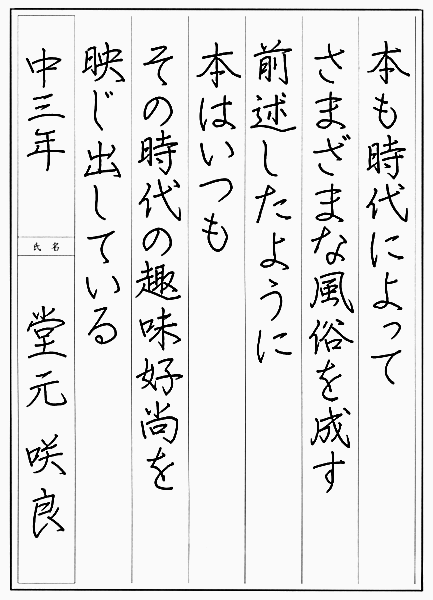 本も時代によって
さまざまな風俗を成す
前述したように
本はいつも
その時代の趣味好尚を
映じ出している
中三年
氏名
堂元 咲良